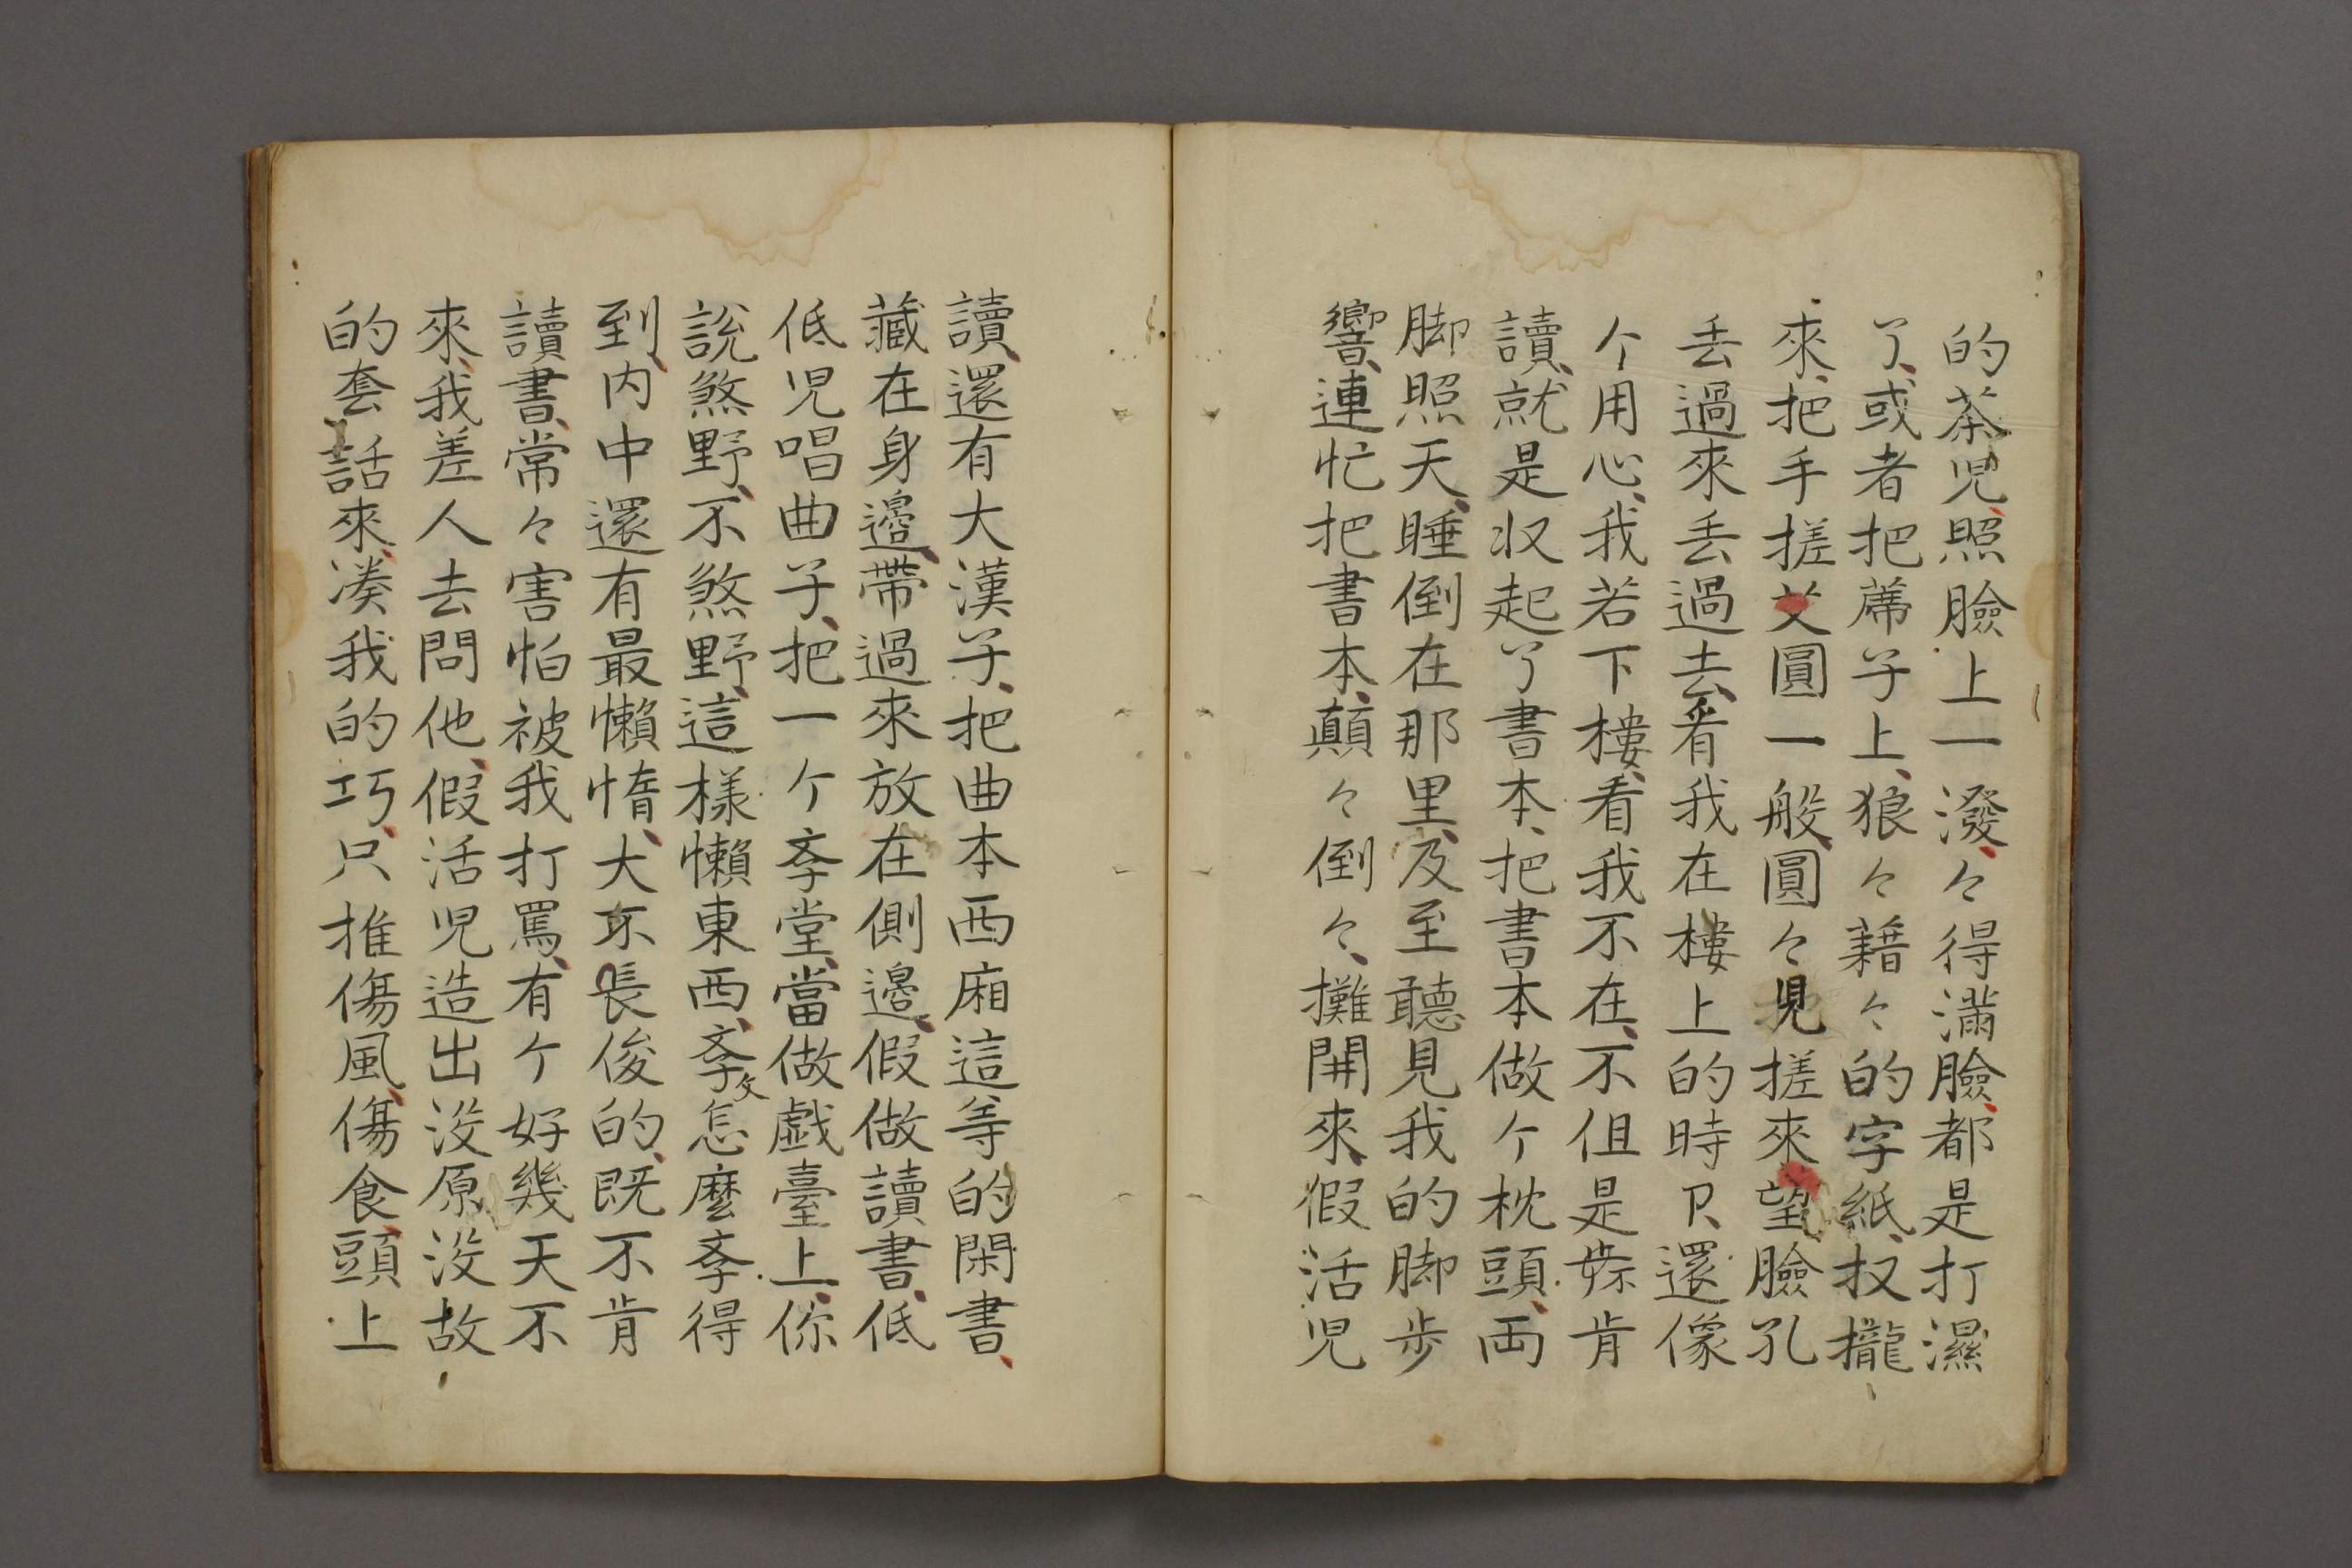 的茶児、照臉上一潑、々得滿臉、都是打濕
了、或者把蓆子上、狼々藉々的字紙、扠攏
來、把手搓丈圓一般、圓々見搓來望臉孔
丢過來丢過去、看我在樓上的時卩、還像
个用心、我若下樓、看我不在、不但是不肯
讀、就是收起了書本、把書本做个枕頭、両
脚照天、睡倒在那里、及至聽見我的脚步
響、連忙把書本、顛々倒々、攤開來、假活児
讀、還有大漢子、把曲本西廂這等的閑書、
藏在身邉、帶過來放在側邉、假做讀書、低
低児唱曲子、把一个斈堂、當做戯臺上、你
說煞野、不煞野、這樣懶東西、斈文怎麼斈得
到、内中還有最懶惰、大不長俊的、既不肯
讀書、常々害怕被我打罵、有个好幾天不
來、我差人去問他、假活児造出没原没故
的套話來、湊我的巧、只推傷風、傷食、頭上